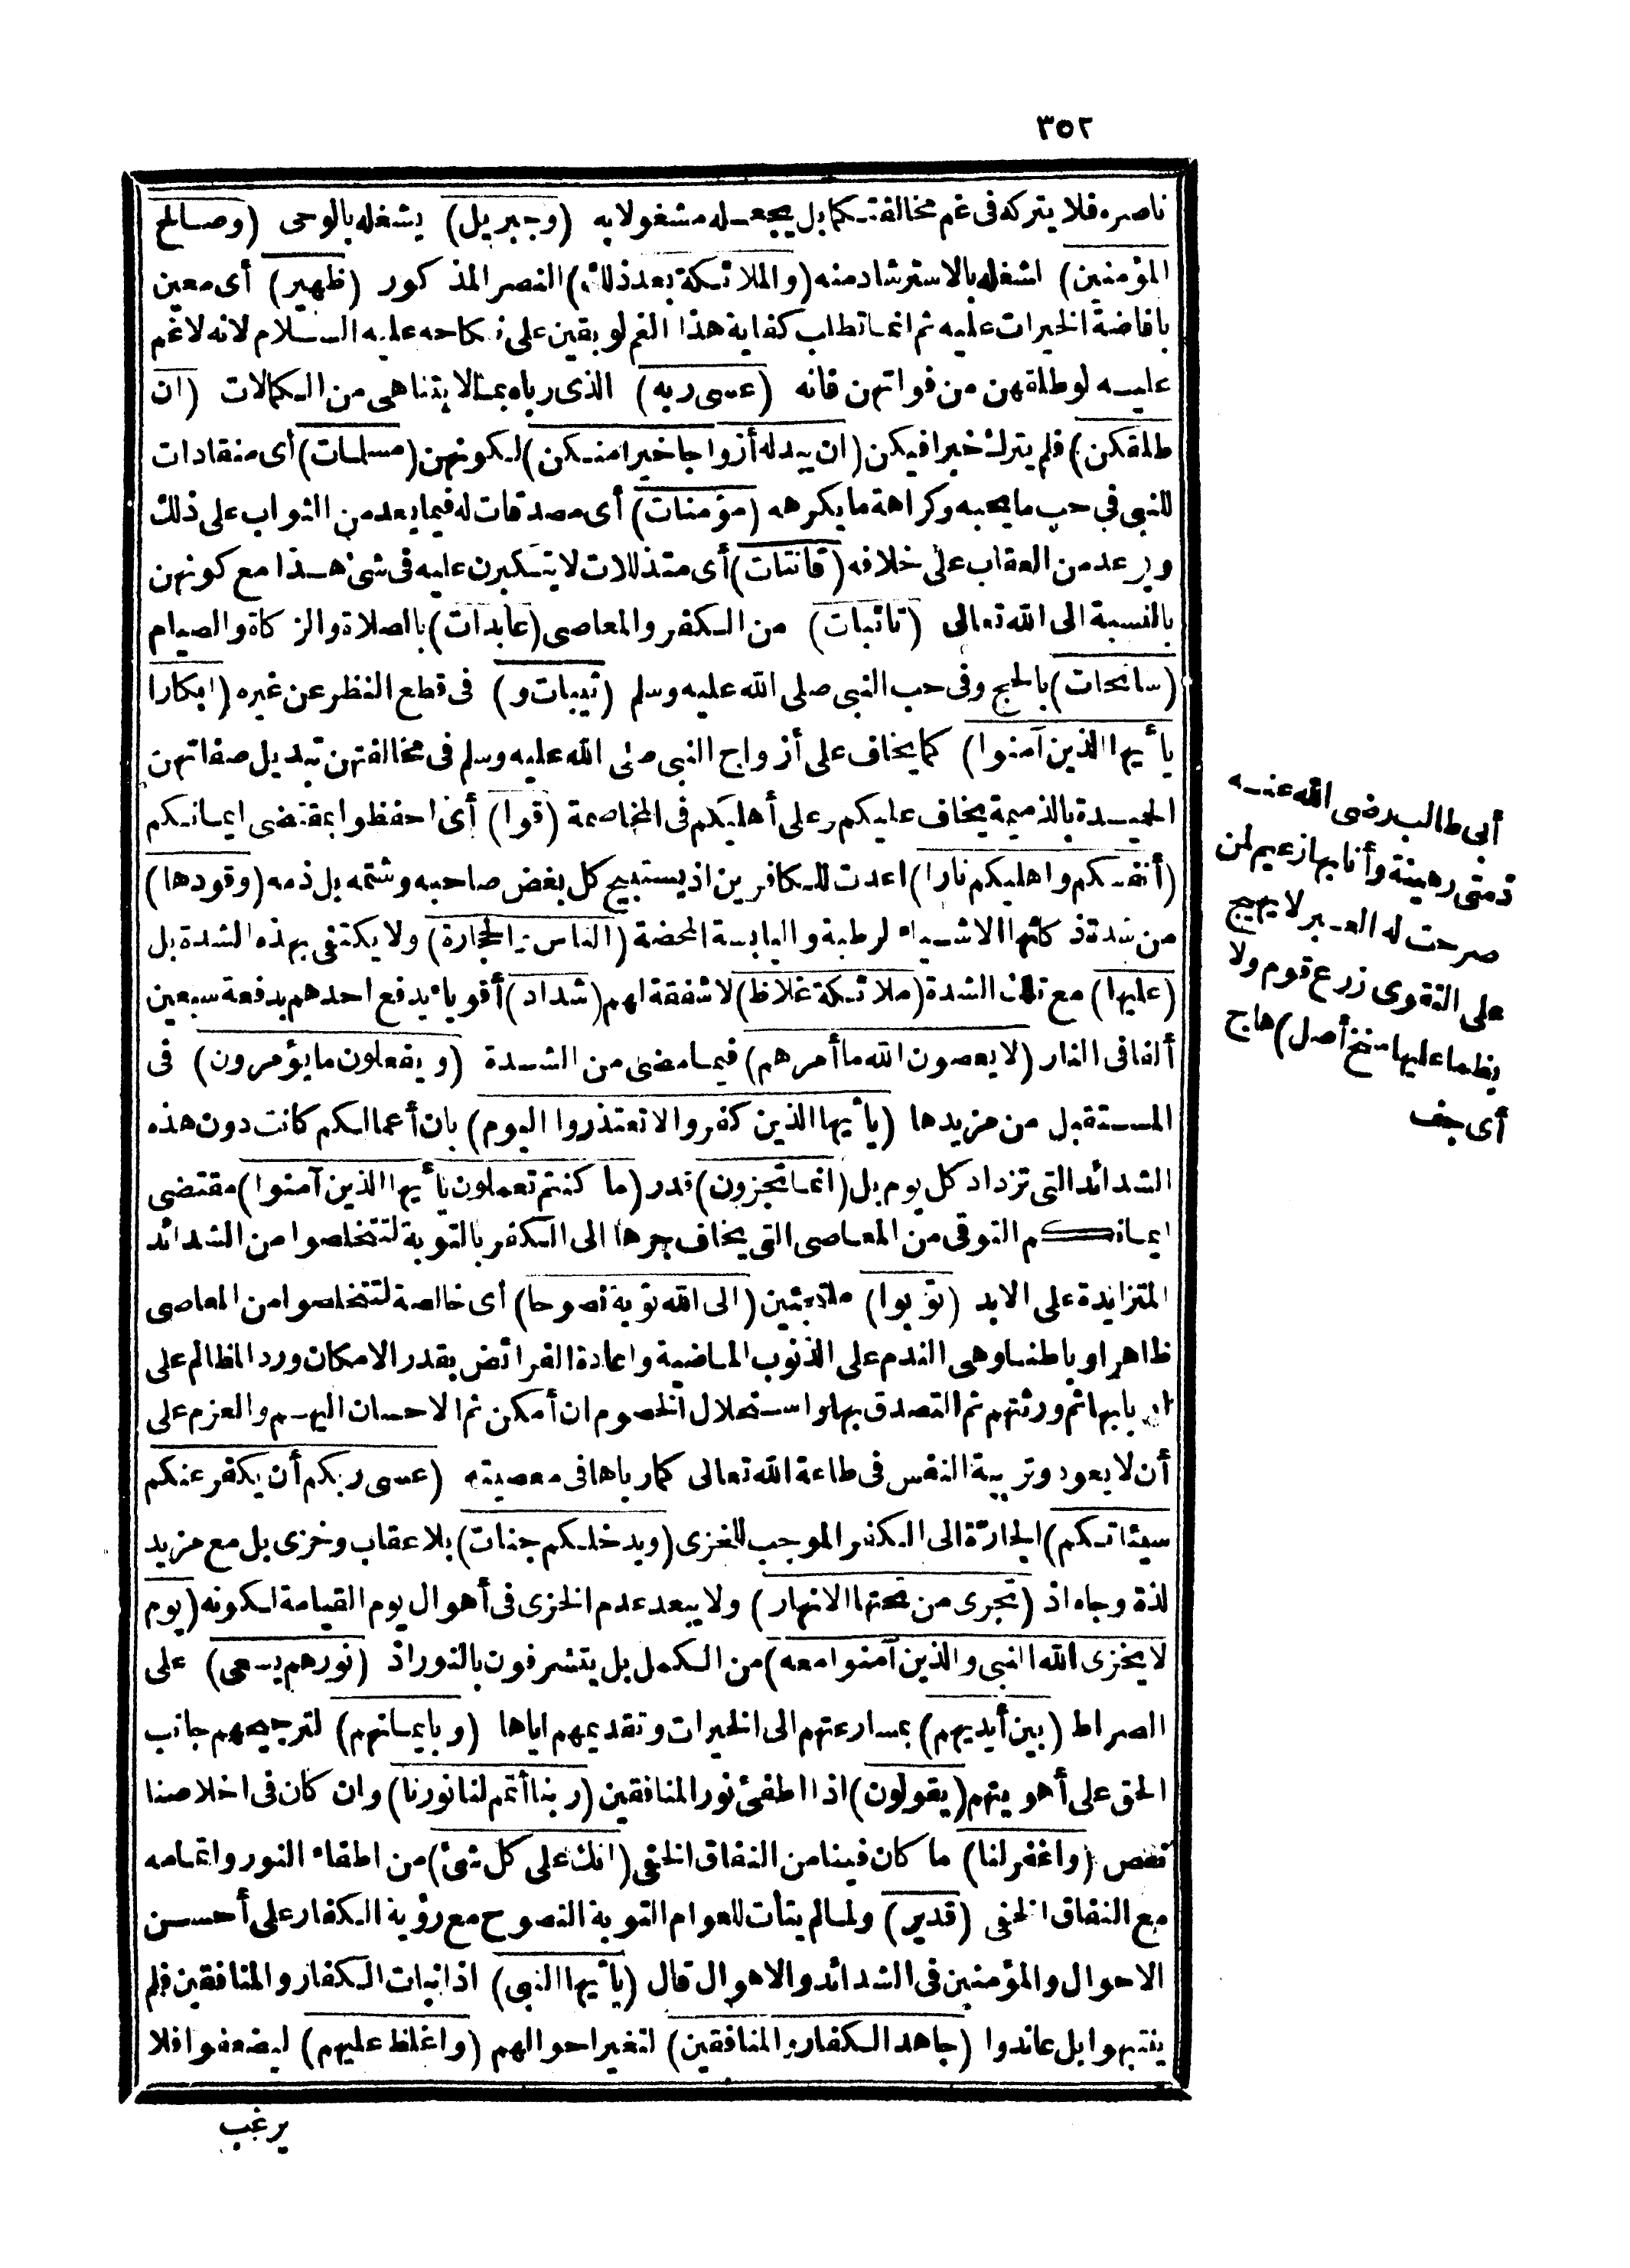 ٣٥٢
ناصره فلا يتركه فى غم مخالفتكما بل يجعله مشغولا به (وجبريل) يشغله بالوحى (وصالح
المؤمنين) اشغله بالاسترشاد منه (والملائكة بعد ذلك) النصر المذكور (ظهير) أى معين
بافاضة الخيرات عليه ثم انما تطلب كفاية هذا الغم لو بقين على نكاحه عليه السلام لانه لا غم
عليه لو طلقهن من فواتهن فانه (عسى ربه) الذى رباه بما لا يتناهى من الكمالات (ان
طلقكن) فلم يترك خيرا فيكن (ان يبدله أزواجا خيرا منكن) لكونهن (مسلمات) أى منقادات
للنبى فى حب ما يحبه وكراهة ما يكرهه (مؤمنات) أى مصدقات له فيما يعد من الثواب على ذلك
ويوعد من العقاب على خلافه (قانتات) أى متذللات لا يتكبرن عليه فى شئ هذا مع كونهن
بالنسبة الى الله تعالى (تائبات) من الكفر والمعاصى (عابدات) بالصلاة والزكاة والصيام
(سائحات) بالحج وفى حب النبى صلى الله عليه وسلم (ثيبات و) فى قطع النظر عن غيره (ابكارا
يأيها الذين آمنوا) كما يخاف على أزواج النبى صلى الله عليه وسلم فى مخالفتهن تبديل صفاتهن
الحميدة بالذميمة يخاف عليكم وعلى أهليكم فى المخاصمة (قوا) أى احفظوا بمقتضى ايمانكم
(أنفسكم واهليكم نارا) اعدت للكافرين اذ يستبيح كل بغض صاحبه وشتمه بل ذمه (وقودها)
من شدة ذكائها الاشياء الرطبة واليابسة المحضة (الناس والحجارة) ولا يكتفى بهذه الشدة بل
(عليها) مع تلك الشدة (ملائكة غلاظ) لا شفقة لهم (شداد) أقوياء يدفع احدهم بدفعة سبعين
ألفا فى النار (لا يعصون الله ما أمرهم) فيما مضى من الشدة (ويفعلون ما يؤمرون) فى
المستقبل من مزيدها (يأيها الذين كفروا لا تعتذروا اليوم) بان أعمالكم كانت دون هذه
الشدائد التى تزداد كل يوم بل (انما تجزون) قدر (ما كنتم تعملون يأيها الذين آمنوا) مقتضى
ايمانكم التوقى من المعاصى التى يخاف جرها الى الكفر بالتوبة لتتخلصوا من الشدائد
المتزايدة على الابد (توبوا) ملتجئين (الى الله توبة نصوحا) أى خالصة لتتخلصوا من المعاصى
ظاهرا وباطنا وهى الندم على الذنوب الماضية واعادة الفرائض بقدر الامكان ورد المظالم على
اربابها ثم ورثتهم ثم التصدق بها واستحلال الخصوم ان أمكن ثم الاحسان اليهم والعزم على
أن لا يعود وتربية النفس فى طاعة الله تعالى كما رباها فى معصيته (عسى ربكم أن يكفر عنكم
سيئاتكم) الجارّة الى الكفر الموجب للخزى (ويدخلكم جنات) بلا عقاب وخزى بل مع مزيد
لذة وجاه اذ (تجرى من تحتها الانهار) ولا يبعد عدم الخزى فى أهوال يوم القيامة لكونه (يوم
لا يخزى الله النبى والذين آمنوا معه) من الكمل بل يتشرفون بالنور اذ (نورهم يسعى) على
الصراط (بين أيديهم) بمسارعتهم الى الخيرات وتقديمهم اياها (وبايمانهم) لترجيحهم جانب
الحق على أهويتهم (يقولون) اذا اطفئ نور المنافقين (ربنا أتمم لنا نورنا) وان كان فى اخلاصنا
نقص (واغفر لنا) ما كان فينا من النفاق الخفى (انك على كل شئ) من اطفاء النور واتمامه
مع النفاق الخفى (قدير) ولما لم يتأت للعوام التوبة النصوح مع رؤية الكفار على أحسن
الاحوال والمؤمنين فى الشدائد والاهوال قال (يأيها النبى) اذ انبات الكفار والمنافقين فلم
ينتبهوا بل عاندوا (جاهد الكفار والمنافقين) لتغير احوالهم (واغلظ عليهم) ليضعفوا فلا
يرغب
أبى طالب رضى الله عنه
ذمتى رهينة وأنا بها زعيم لمن
صرحت له العبر لا يهيج
على التقوى زرع قوم ولا
يظمأ عليها سنخ أصل) هاج
أى جف